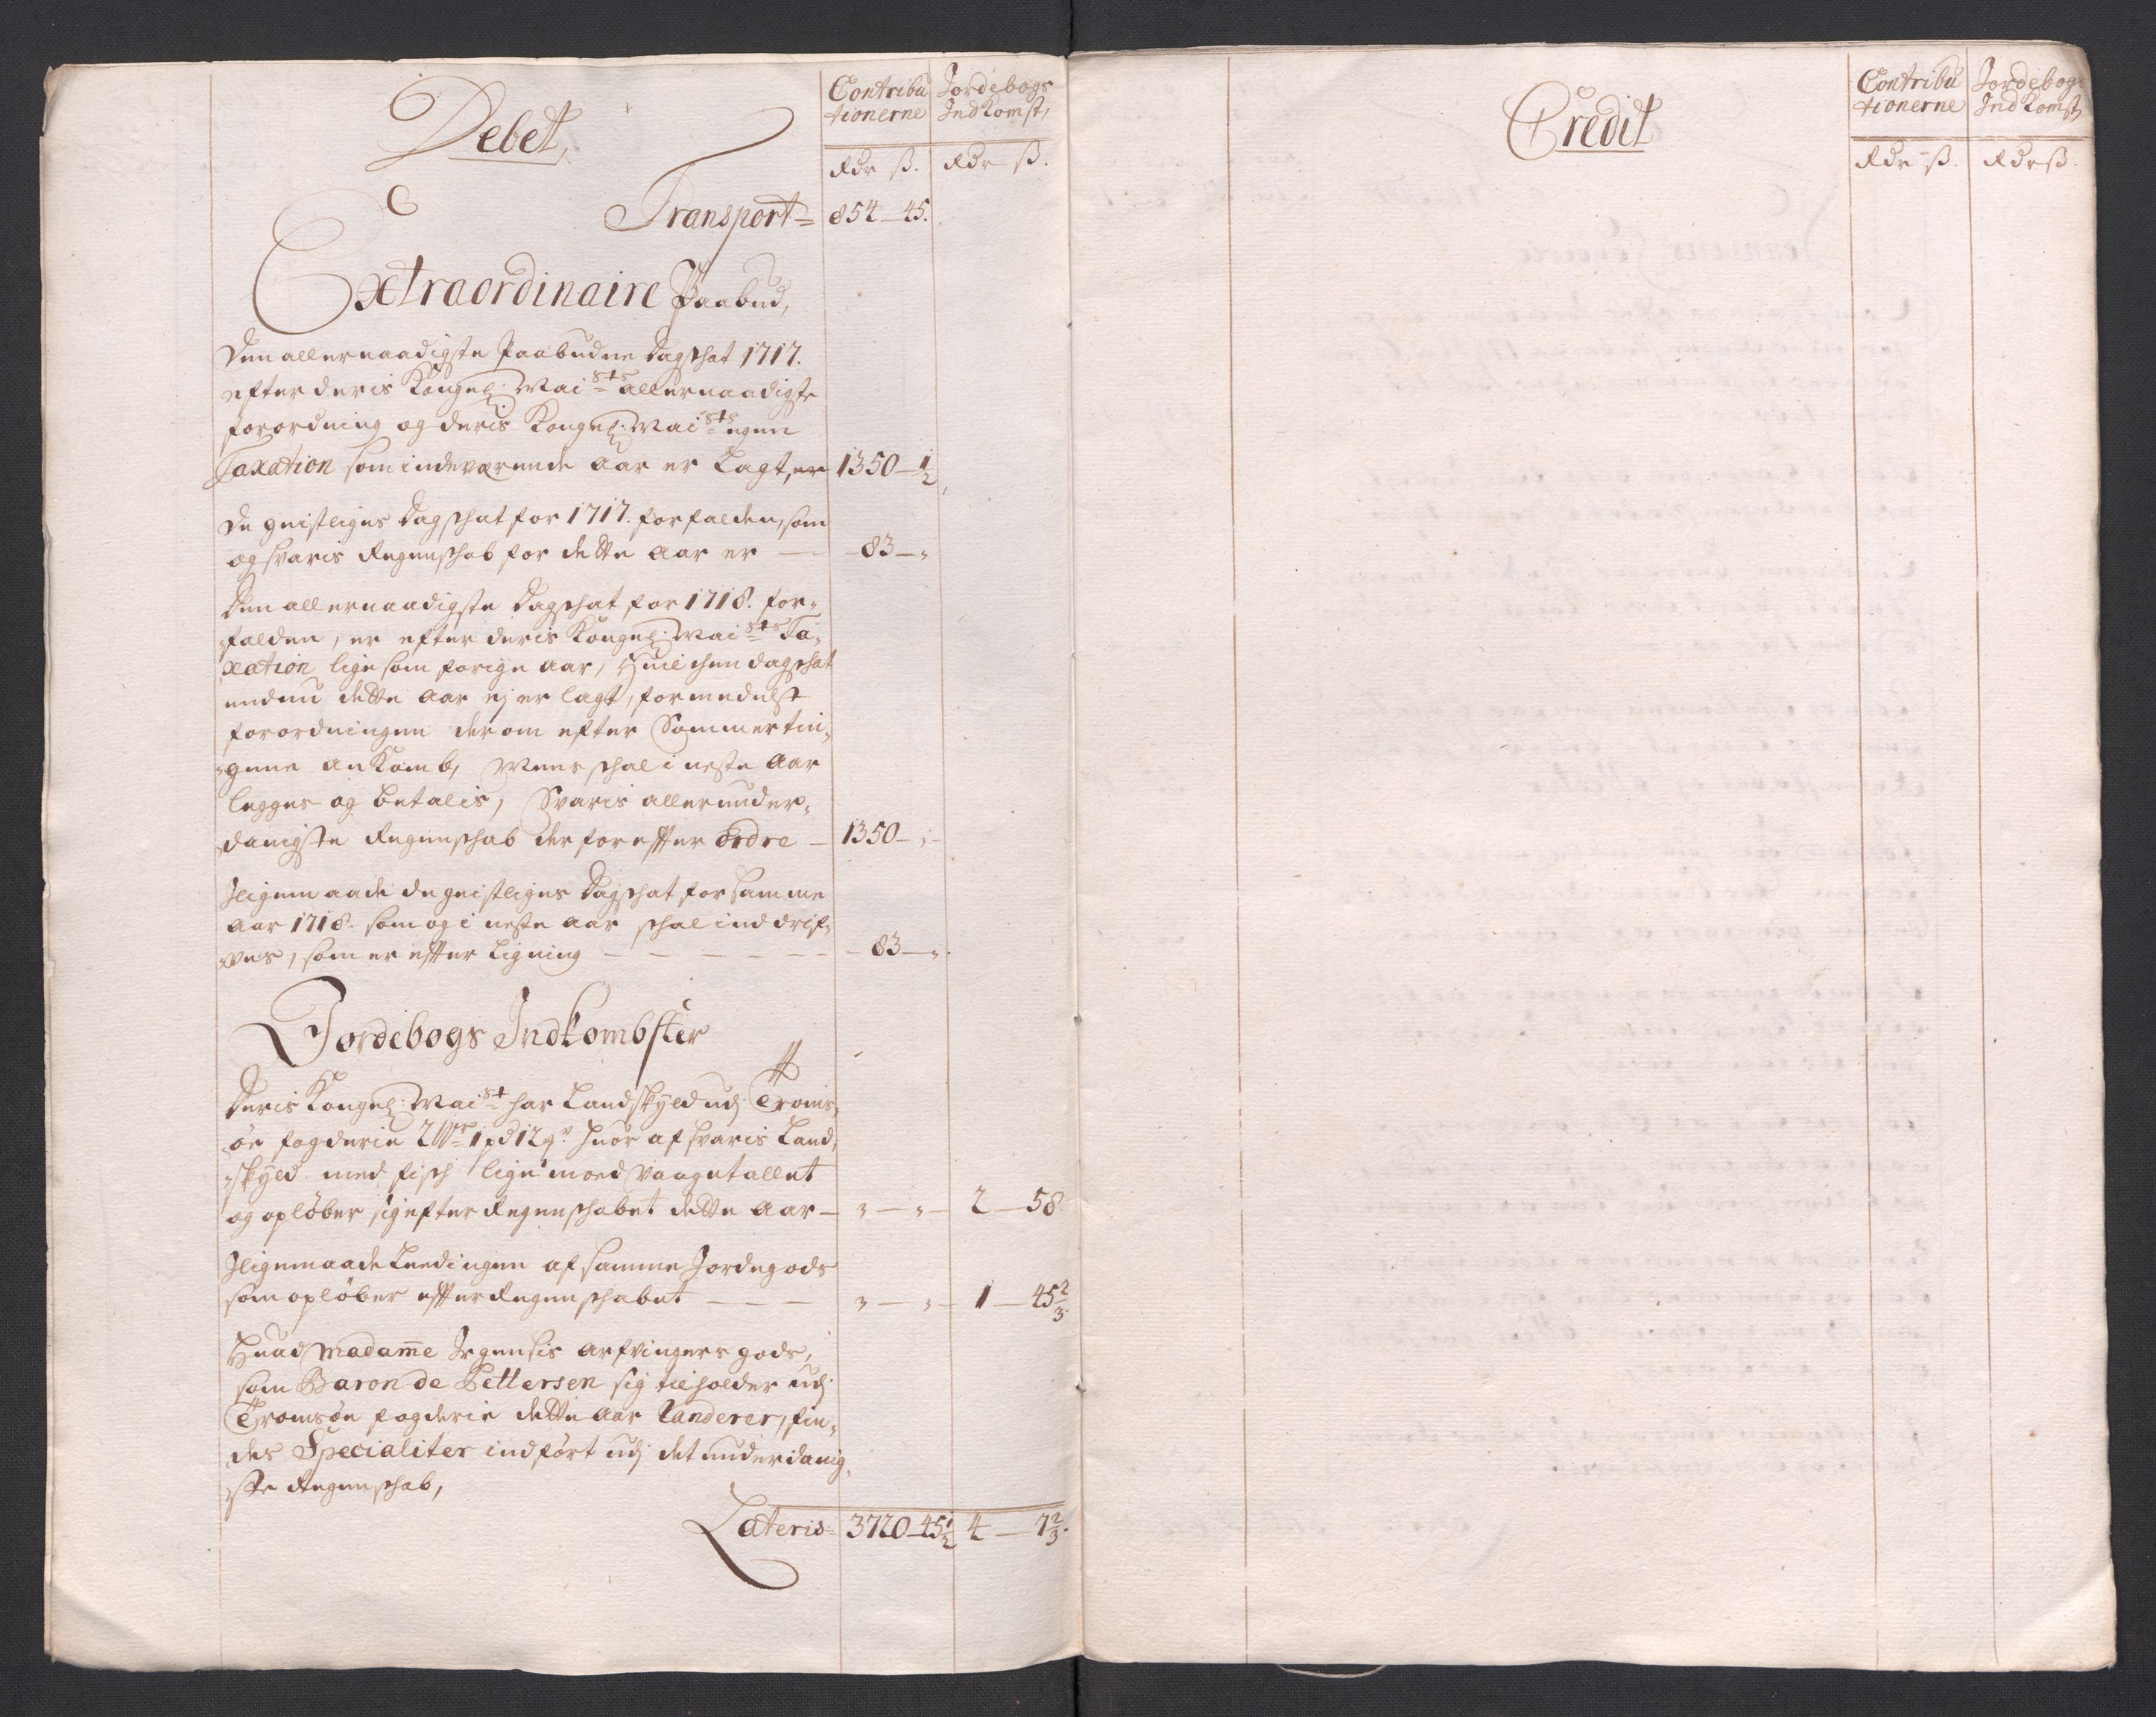 Debet,
Contribu Jordebogs
tionerne IndKomst,
Rdr ß. Rdr ß.
Transport= 854 - 45.
Extraordinaire Paabud,
Den allernaadigste Paabudne Dagschat 1717.
efter deris Kongel: Maists allernaadigste
forordning og deris Kongel: Maists egen
Taxation som indeværende Aar er Lagt, er 1350 - 1/2
De geistliges Dagschat for 1717. forfalden, som
og svaris Regenschab for dette Aar er - 83 - "
Den allernaadigste Dagschat for 1718. for-
falden, er efter deris Kongel: Maists Ta-
xation lige som forige Aar, Huilchen dagschat
endnu dette Aar ej er lagt, formedelst
forordningen derom efter Sommertin-
gene anKomb, Mens schal i neste Aar
legges og betalis, Svaris allerunder-
danigste Regenschab derfor effter ordre - 1350 - "
Iligemaade de geistliges Dagschat for samme
Aar 1718. som og i neste Aar schal inddrif-
ves, som er effter Ligning - 83 - "
Jordebogs Indkombster
Deris Kongel: Maist har Landskyld udj Troms-
øe fogderie 2 Wr 1 pd 12 mrk huor af svaris Land-
skyld med fisch lige moed Vaagetallet
og opløber sig efter Regenschabet dette Aar - " - " - 2 - 58.
Iligemaade Leedingen af samme Jordegods
som opløber effter Regenschabet - " - " - 1 - 45 2/3.
Huad Madame Irgensis Arfvingers gods,
som Baron de Pettersen sig tilholder udj
Tromsøe fogderie dette Aar Randerer, fin-
des Specialiter indført udj det underdanig-
ste Regenschab,
Lateris= 3720 - 45 1/2 4 - 7 2/3.
Credit
Contribu Jordebogs
tionerne IndKomst,
Rdr - ß. Rdr ß.